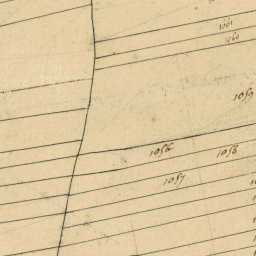 1061
1060
1059
1056
1058
1057